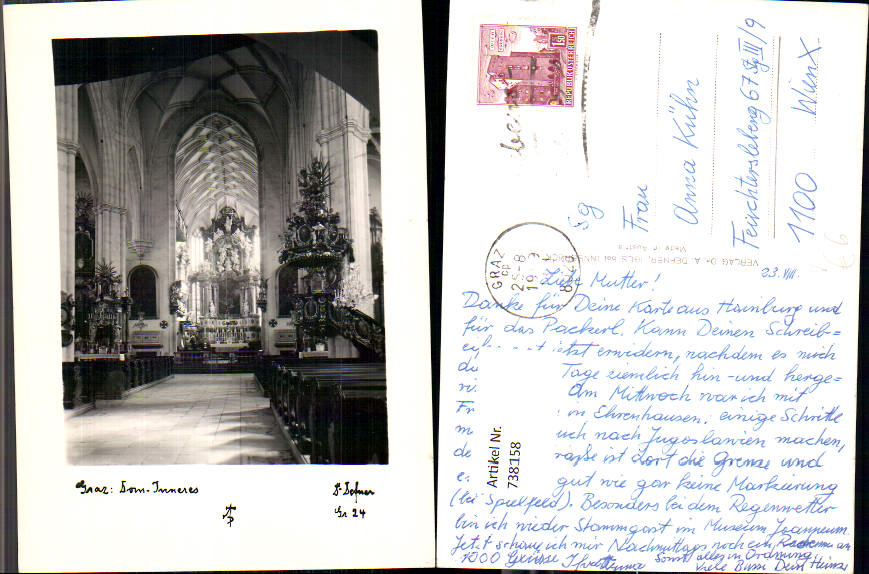 Graz: Dom-Inneres
Dr Defner
Gr 24
REPUBLIK ÖSTERREICH
1.50
GRAZ
Sg
Frau
Anna Kühn
Feuchterslebeng 67
III/9
1100 Wien X.
VERLAG Dr. A. DEFNER, IGLS bei INNSBRUCK
Made in Austria
23. VIII.
Liebe Mutter!
Danke für Deine Karte aus Hainburg und
für das Packerl. Kann Deinen Schreib=
jetzt erwidern, nachdem es mich
Tage ziemlich hin-und herge=
Am Mittwoch war ich mit
in Ehrenhausen: einige Schritte
uch nach Jugoslawien machen,
raße ist dort die Grenze und
gut wie gar keine Markierung
(bei Spielfeld). Besonders bei dem Regenwetter
bin ich wieder Stammgast im Museum Joanneum.
Jetzt schaue ich mir Nachmittags noch ein
1000 Grüsse
Sonst alles in Ordnung
Viele Bussi Dein Heinz
Artikel Nr.
738158